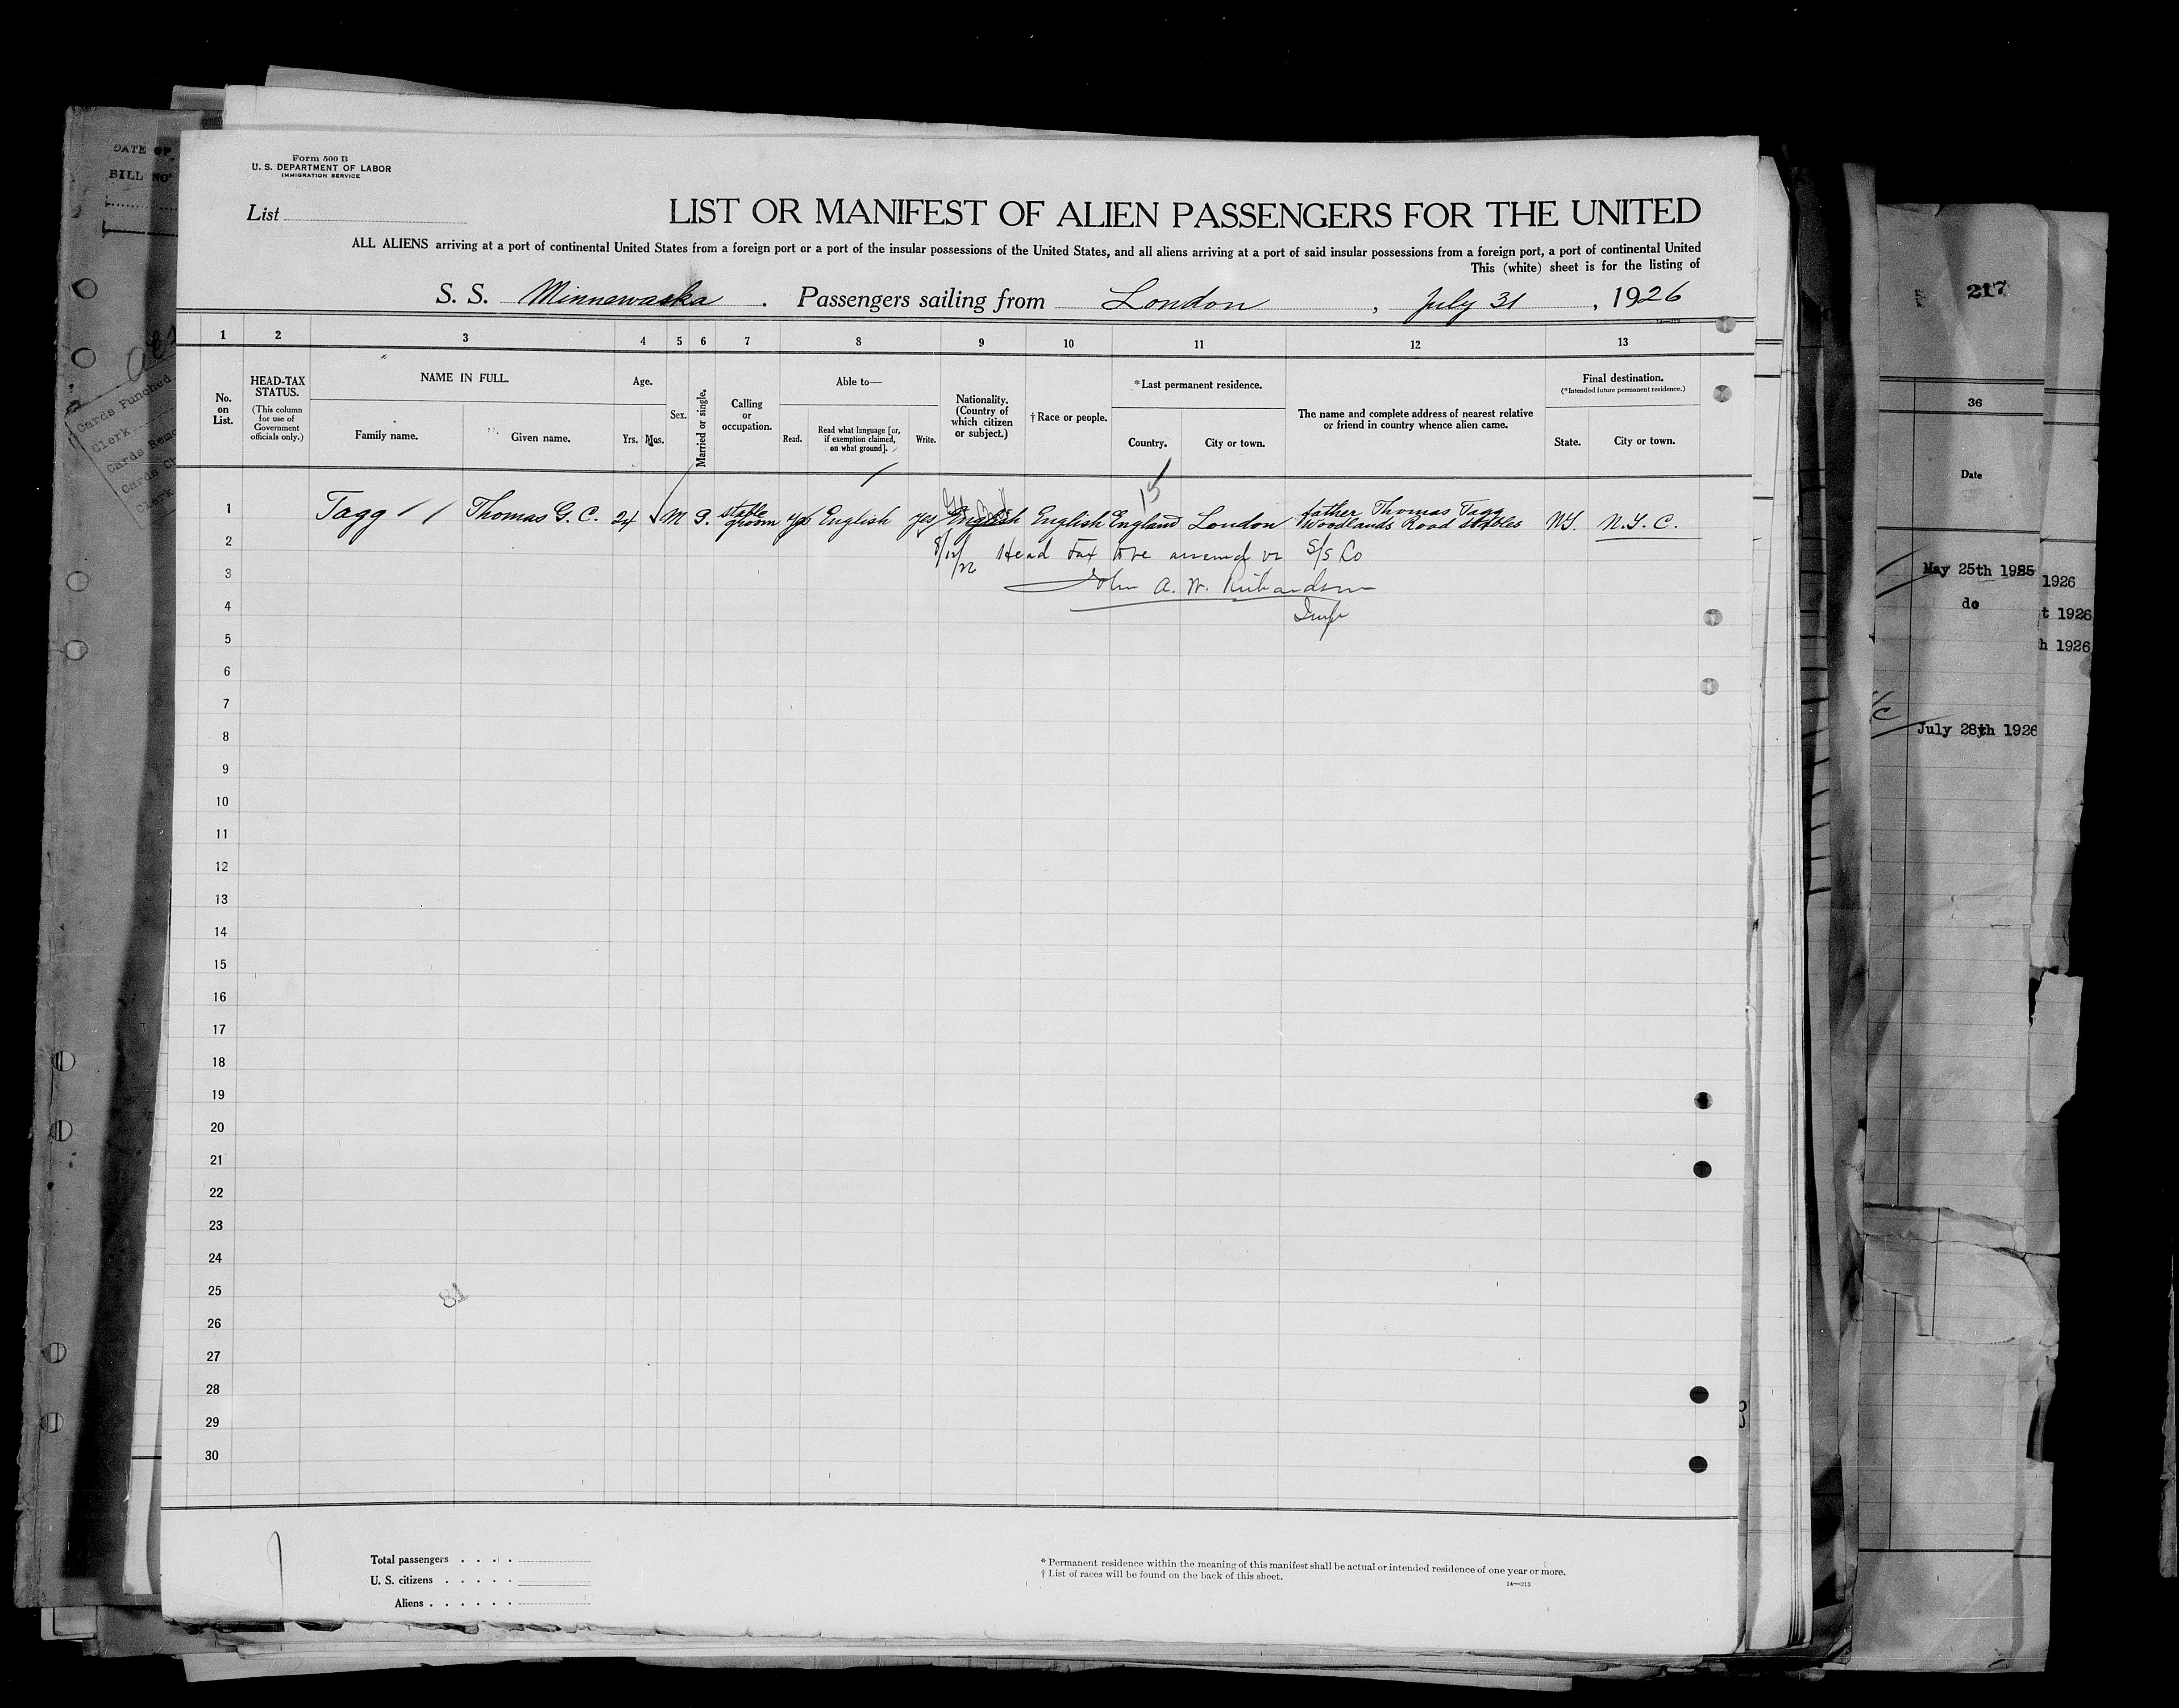 Form 500 B
U. S. DEPARTMENT OF LABOR
IMMIGRATION SERVICE
List
LIST OR MANIFEST OF ALIEN PASSENGERS FOR THE UNITED
ALL ALIENS arriving at a port of continental United States from a foreign port or a port of the insular possessions of the United States, and all aliens arriving at a port of said insular possessions from a foreign port, a port of continental United
This (white) sheet is for the listing of
S. S. Minnewaska . Passengers sailing from London , July 31 , 1926
1 2 3 4 5 6 7 8 9 10 11 12 13
No. on List.
HEAD-TAX STATUS.
(This column for use of Government officials only.)
NAME IN FULL.
Family name. Given name.
Age.
Yrs. Mos.
Sex.
Married or single.
Calling or occupation.
Able to—
Read. Read what language [or, if exemption claimed, on what ground]. Write.
Nationality. (Country of which citizen or subject.)
†Race or people.
*Last permanent residence.
Country. City or town.
The name and complete address of nearest relative or friend in country whence alien came.
Final destination.
(*Intended future permanent residence.)
State. City or town.
15
1 Tagg Thomas G. C. 24 M S. stable groom yes English yes English English England London father Thomas Tagg Woodlands Road stables NY. N.Y.C.
2 Head tax to be assessed vs S/S Co
3 John A. W. Richardson
4 Insp
5
6
7
8
9
10
11
12
13
14
15
16
17
18
19
20
21
22
23
24
25
81
26
27
28
29
30
Total passengers
U. S. citizens
Aliens
* Permanent residence within the meaning of this manifest shall be actual or intended residence of one year or more.
† List of races will be found on the back of this sheet.
14—213
DATE OF
BILL NO
Cards Punched
Clerk
Clerk
217
36
Date
May 25th 1925
1926
do
t 1926
h 1926
July 28th 1926